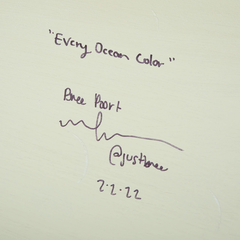 "Every Ocean Color"
Bree Poort
@justbree
2·2·22